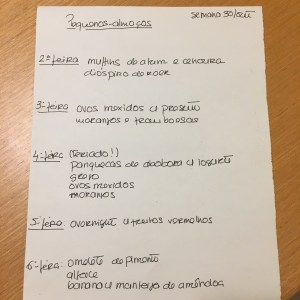 Pequenos-almoços
semana 30/out
2ª feira muffins de atum e cenoura
dióspiro de roer
3ª feira ovos mexidos c/ presunto
morangos e framboesas
4ª feira (feriado!)
panquecas de abóbora c/ iogurte
grego
ovos mexidos
morangos
5ª feira: overnight c/ frutos vermelhos
6ª-feira: omolete de pimento
alface
banana c/ manteiga de amêndoa